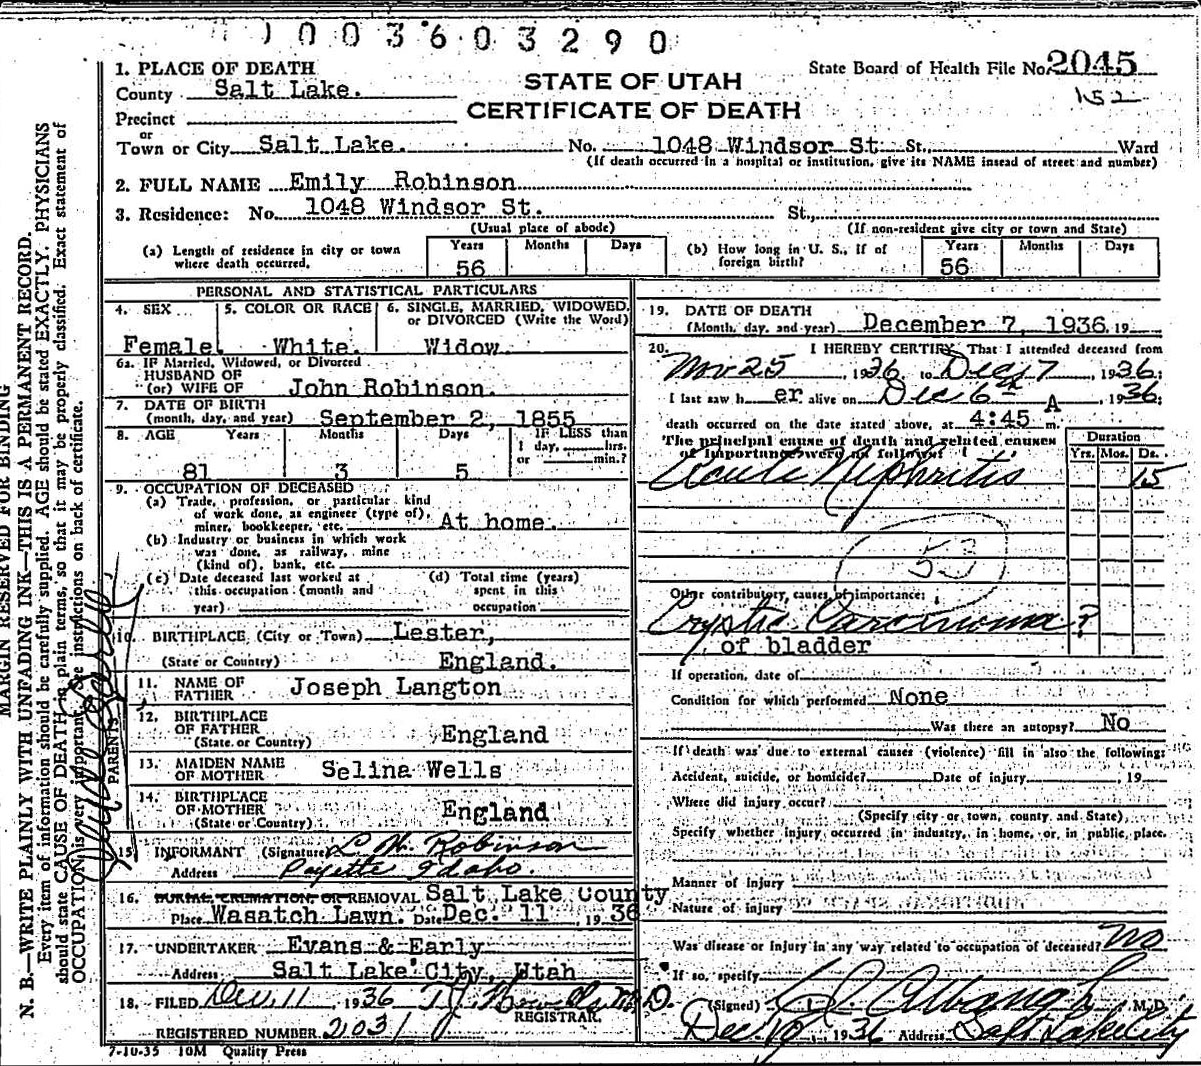 1003603290
1. PLACE OF DEATH
County Salt Lake.
Precinct
or
Town or City Salt Lake. No. 1048 Windsor St. St., Ward
STATE OF UTAH
CERTIFICATE OF DEATH
State Board of Health File No. 2045
152
(If death occurred in a hospital or institution, give its NAME insead of street and number)
2. FULL NAME Emily Robinson
3. Residence: No. 1048 Windsor St. St.,
(Usual place of abode) (If non-resident give city or town and State)
(a) Length of residence in city or town where death occurred. Years 56 Months Days
(b) How long in U. S., if of foreign birth? Years 56 Months Days
PERSONAL AND STATISTICAL PARTICULARS
4. SEX Female.
5. COLOR OR RACE White.
6. SINGLE, MARRIED, WIDOWED, or DIVORCED (Write the Word) Widow.
6a. IF Married, Widowed, or Divorced
HUSBAND OF
(or) WIFE OF John Robinson.
7. DATE OF BIRTH
(month, day, and year) September 2, 1855
8. AGE Years Months Days IF LESS than
1 day, hrs.
or min.?
81 3 5
9. OCCUPATION OF DECEASED
(a) Trade, profession, or particular kind
of work done, as engineer (type of),
miner, bookkeeper, etc. At home.
(b) Industry or business in which work
was done, as railway, mine
(kind of), bank, etc.
(c) Date deceased last worked at
this occupation (month and
year)
(d) Total time (years)
spent in this
occupation
10. BIRTHPLACE (City or Town) Lester,
(State or Country) England.
PARENTS
11. NAME OF
FATHER Joseph Langton
12. BIRTHPLACE
OF FATHER
(State or Country) England
13. MAIDEN NAME
OF MOTHER Selina Wells
14. BIRTHPLACE
OF MOTHER
(State or Country) England
15. INFORMANT (Signature) Robinson
Address Payette Idaho.
16. BURIAL, CREMATION, OR REMOVAL Salt Lake County
Place Wasatch Lawn. Date Dec. 11 1936
17. UNDERTAKER Evans & Early
Address Salt Lake City, Utah
18. FILED Dec. 11 1936 M.D.
REGISTRAR.
REGISTERED NUMBER 2031
7-10-35 10M Quality Press
19. DATE OF DEATH
(Month, day, and year) December 7, 1936. 19
20. I HEREBY CERTIFY, That I attended deceased from
Nov 25, 1936, to Dec 7, 1936;
I last saw h er alive on Dec 6th, 1936;
death occurred on the date stated above, at 4:45 A m.
The principal cause of death and related causes
of importance were as follows:
Duration
Yrs. Mos. Ds.
Acute Nephritis 15
53
Other contributory causes of importance:
Cystic Carcinoma?
of bladder
If operation, date of
Condition for which performed None
Was there an autopsy? No
If death was due to external causes (violence) fill in also the following:
Accident, suicide, or homicide? Date of injury , 19
Where did injury occur?
(Specify city or town, county and State)
Specify whether injury occurred in industry, in home, or in public place.
Manner of injury
Nature of injury
Was disease or injury in any way related to occupation of deceased? No
If so, specify
(Signed) M.D.
Dec. 10, 1936 Address Salt Lake City
MARGIN RESERVED FOR BINDING
N. B.—WRITE PLAINLY WITH UNFADING INK—THIS IS A PERMANENT RECORD.
Every item of information should be carefully supplied. AGE should be stated EXACTLY. PHYSICIANS
should state CAUSE OF DEATH in plain terms, so that it may be properly classified. Exact statement of
OCCUPATION is very important. See instructions on back of certificate.